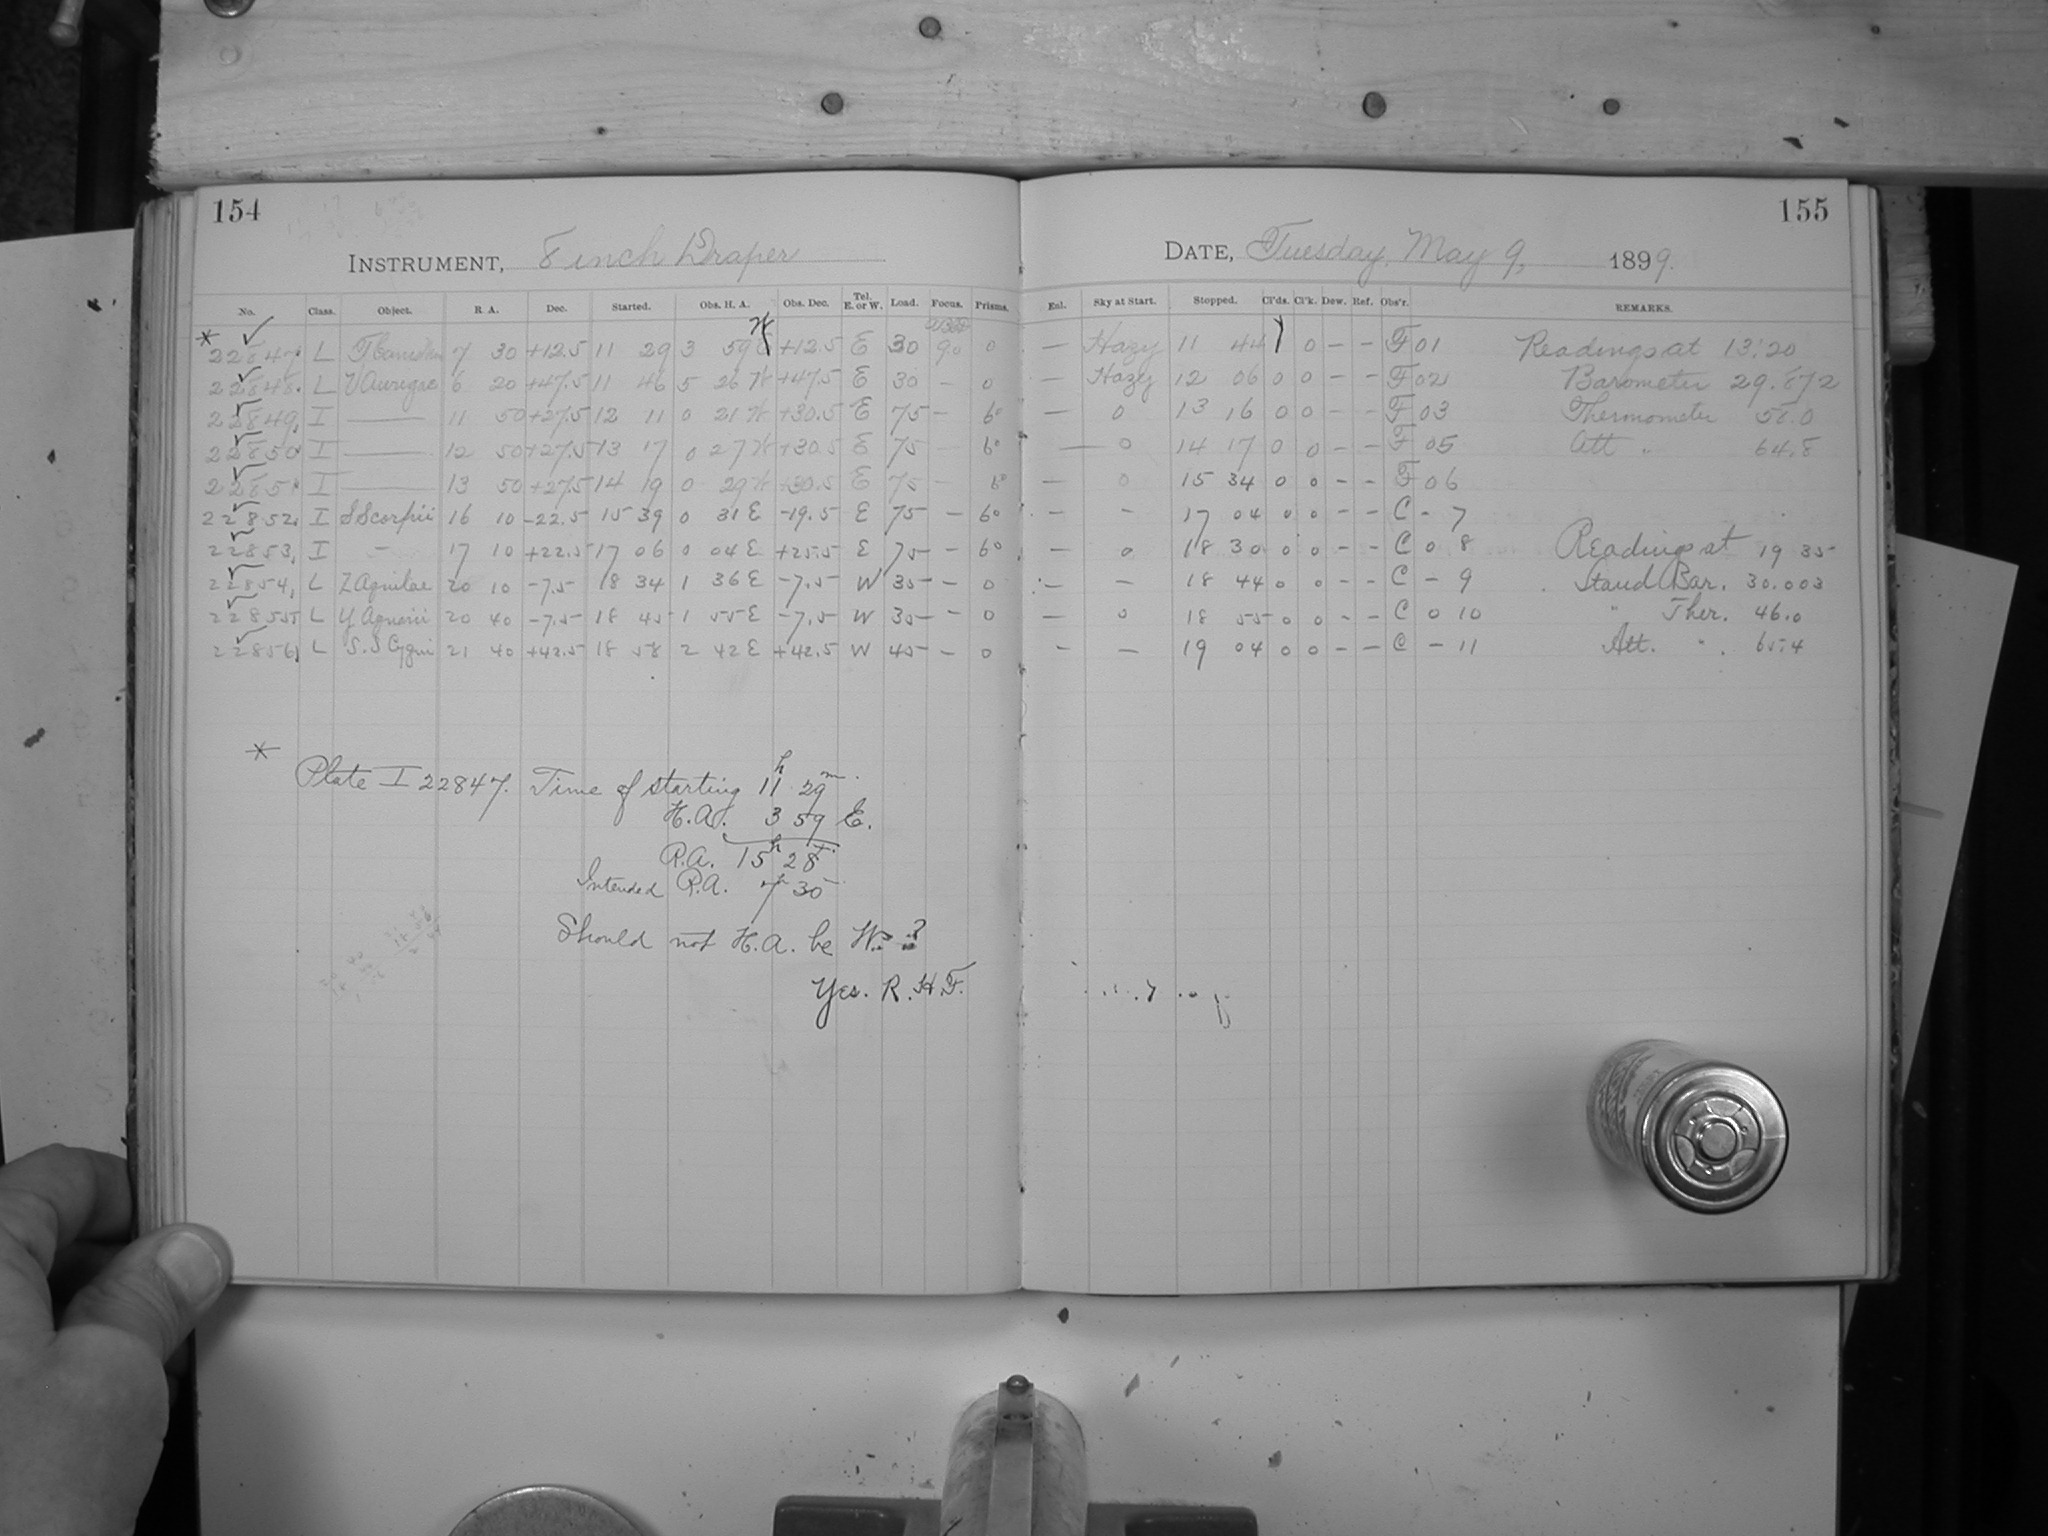 154
INSTRUMENT, 8 inch Draper
No. Class. Object. R. A. Dec. Started. Obs. H. A. Obs. Dec. Tel. E. or W. Load. Focus. Prisms.
* 22847 L 7 30 +12.5 11 29 3 59 W +12.5 E 30 90 0
22848. L V Aurigae 6 20 +47.5 11 46 5 26 W +47.5 E 30 – 0
22849, I — 11 50 +27.5 12 11 0 21 W +30.5 E 75 – 60
22850 I — 12 50 +27.5 13 17 0 27 W +30.5 E 75 – 60
22851 I — 13 50 +27.5 14 19 0 29 W +30.5 E 75 – 60
22852, I S Scorpii 16 10 -22.5 15 39 0 31 E -19.5 E 75 – 60
22853, I – 17 10 +22.5 17 06 0 04 E +25.5 E 75 – 60
22854, L Z Aquilae 20 10 -7.5 18 34 1 36 E -7.5 W 35 – 0
22855 L Y Aquarii 20 40 -7.5 18 45 1 55 E -7.5 W 35 – 0
22856, L S.S Cygni 21 40 +42.5 18 58 2 42 E +42.5 W 45 – 0
*
Plate I 22847. Time of starting 11h 29m.
H.A. 3 59 E.
R.A. 15h 28
Intended R.A. 7h 30
Should not H.A. be W. ?
Yes. R.H.F.
155
DATE, Tuesday, May 9, 1899.
Enl. Sky at Start. Stopped. Cl'ds. Cl'k. Dew. Ref. Obs'r. REMARKS.
— Hazy 11 44 1 0 – – F 01 Readings at 13:20
— Hazy 12 06 0 0 – – F 02 Barometer 29.872
— 0 13 16 0 0 – – F 03 Thermometer
— 0 14 17 0 0 – – F 05 Att " 64.8
— 0 15 34 0 0 – – F 06
— – 17 04 0 0 – – C – 7
— 0 18 30 0 0 – – C 0 8 Readings at 19 35
— – 18 44 0 0 – – C – 9 Stand Bar. 30.003
— 0 18 55 0 0 – – C 0 10 " Ther. 46.0
– – 19 04 0 0 – – C – 11 Att. " . 65.4